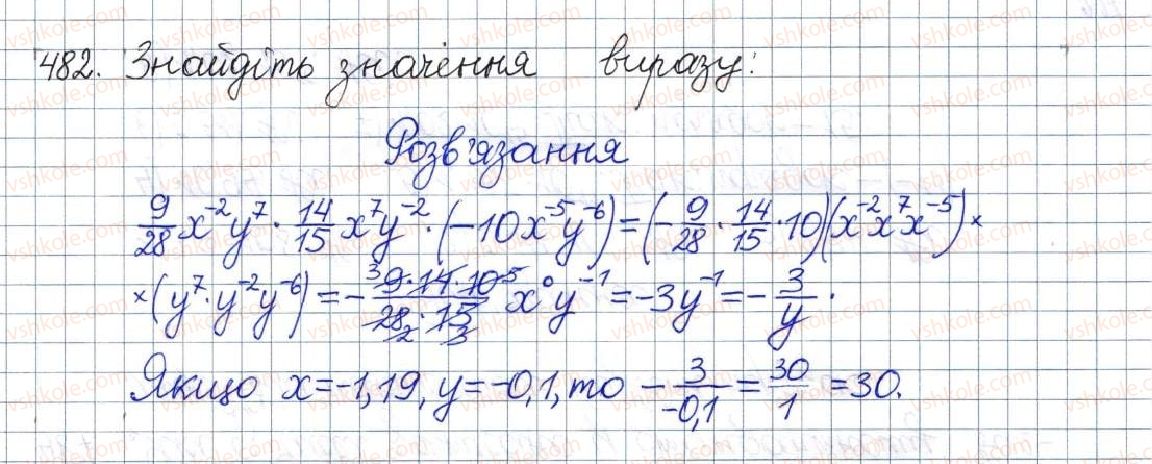 482. Знайдіть значення виразу:
Розв'язання
9/28 x⁻²y⁷ · 14/15 x⁷y⁻² · (−10x⁻⁵y⁻⁶) = (−9/28 · 14/15 · 10)(x⁻²x⁷x⁻⁵) ×
× (y⁷·y⁻²y⁻⁶) = − ³9·14·10⁵/28₂·15₃ x⁰y⁻¹ = −3y⁻¹ = −3/y.
Якщо x = −1,19, y = −0,1, то −3/−0,1 = 30/1 = 30.